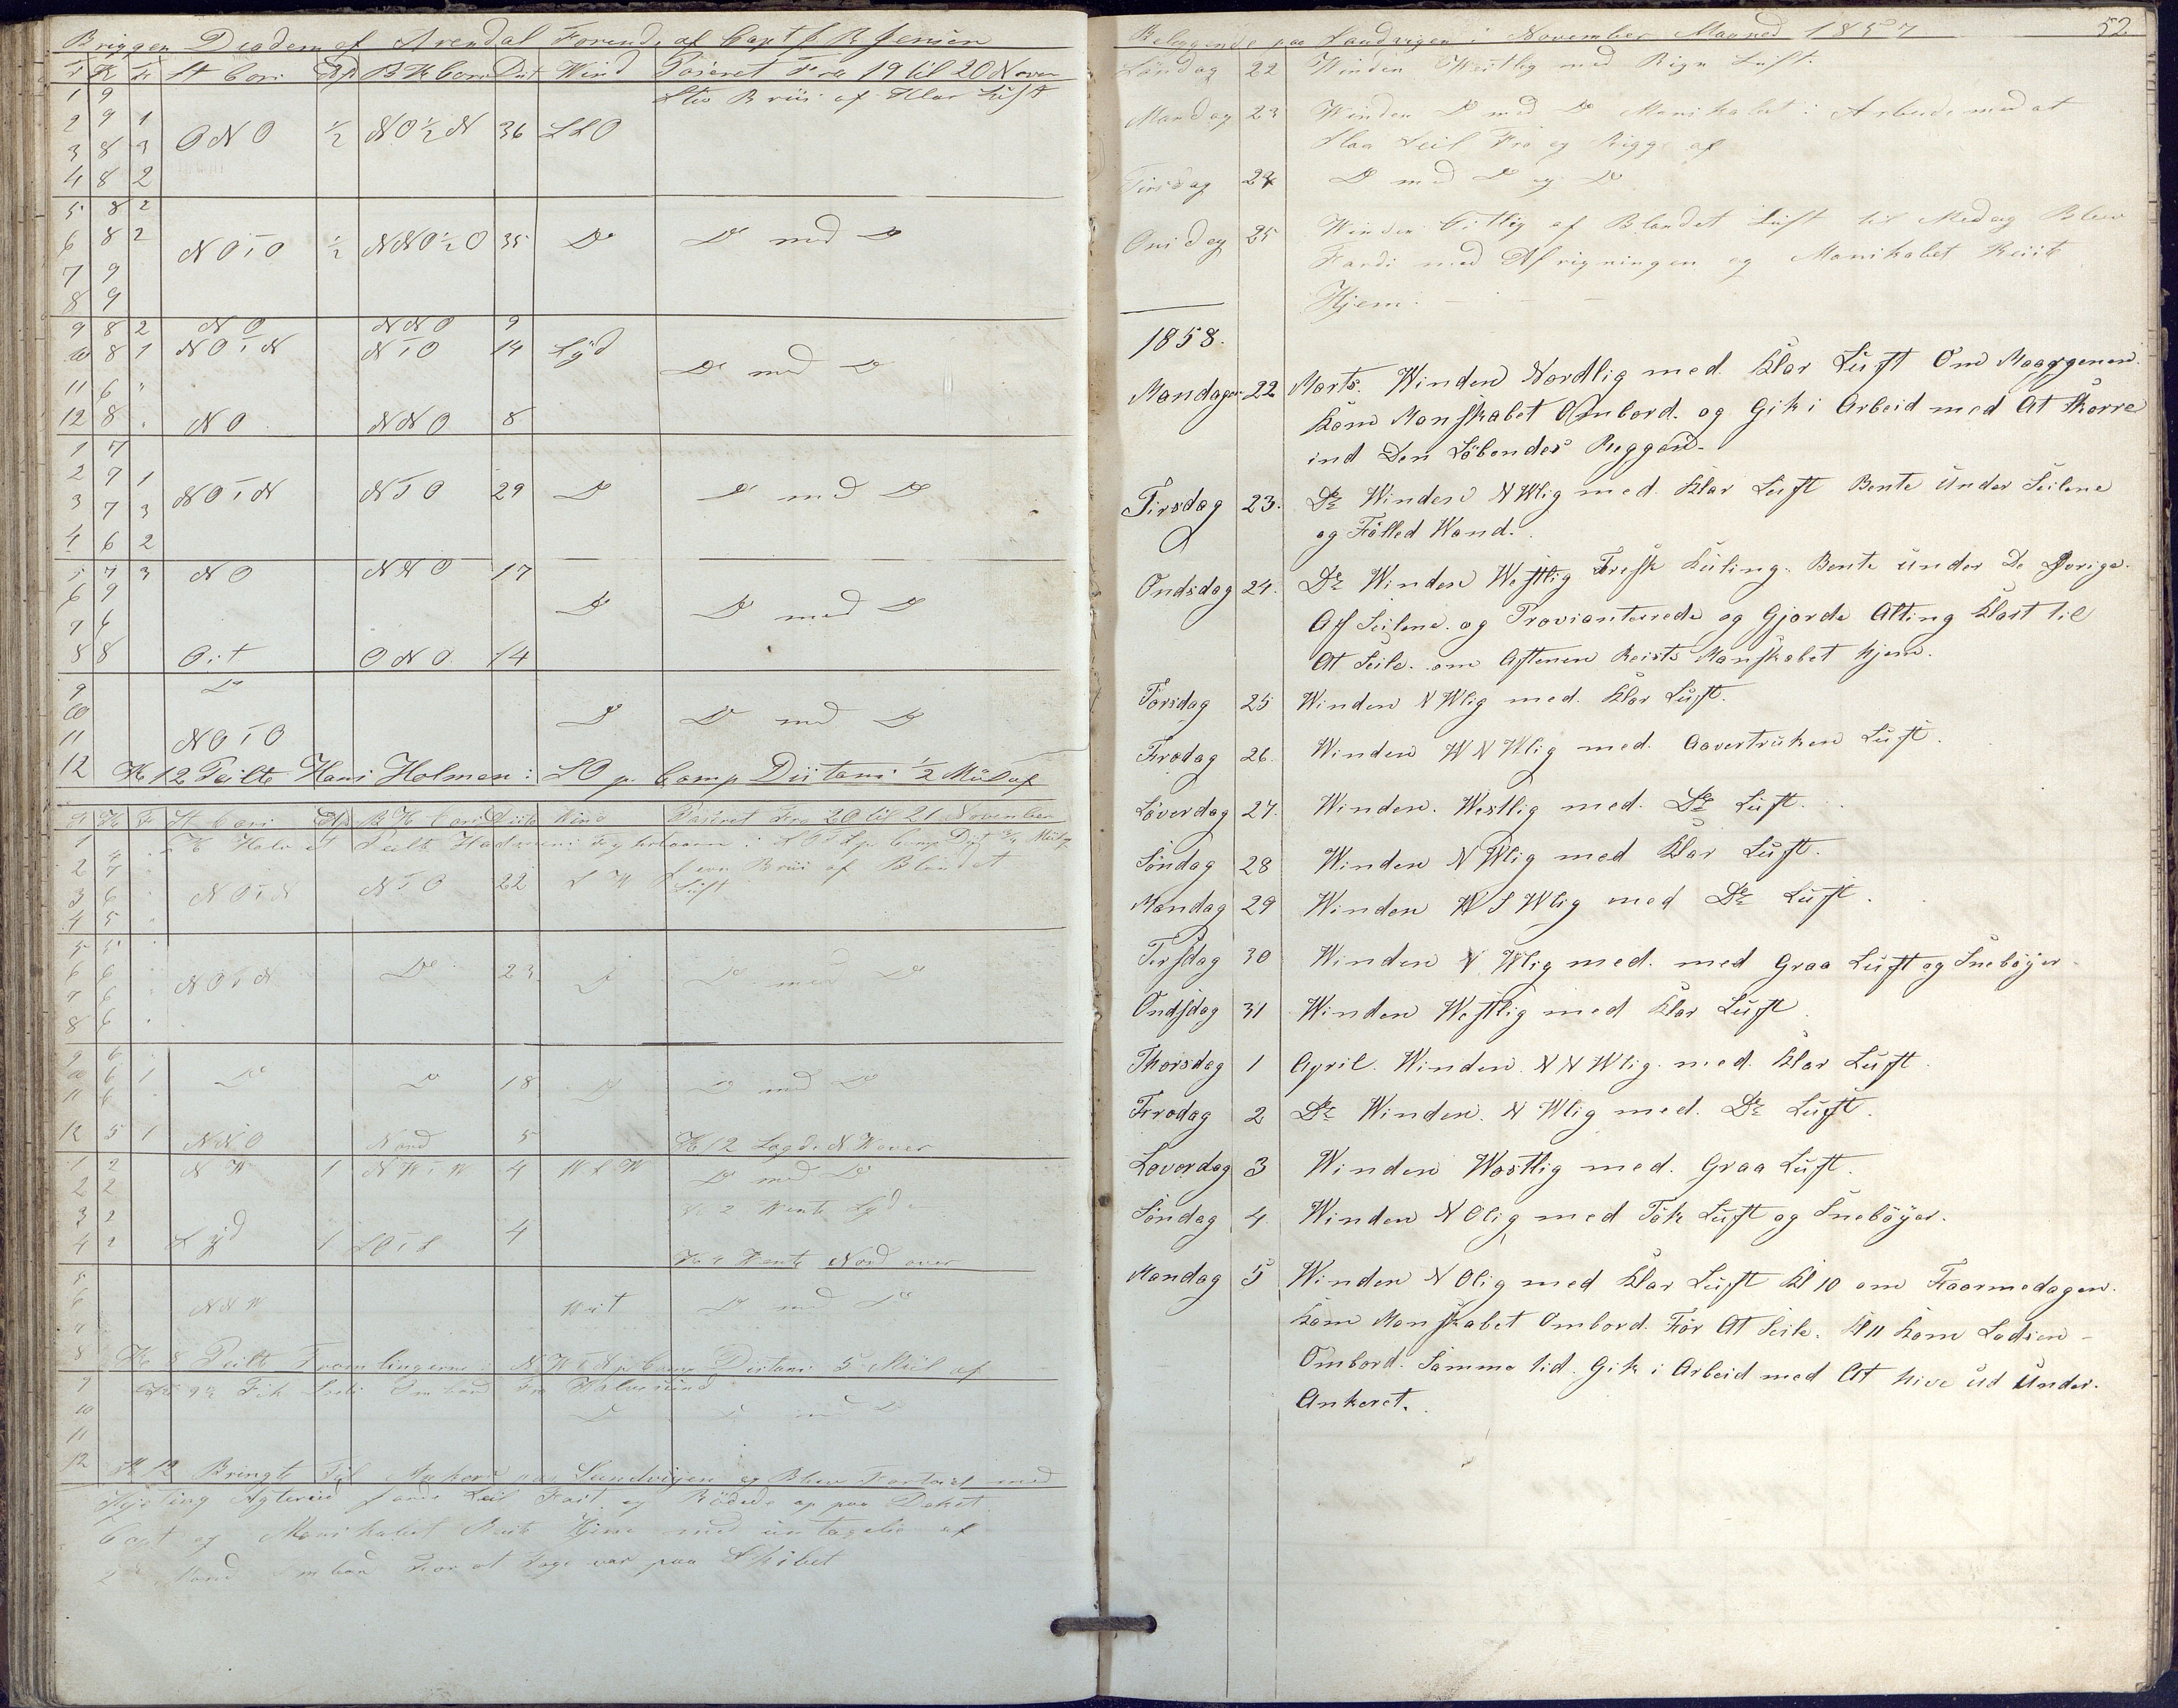 Briggen Diadem af Arendal Forende af Capt J R Jensen
T K F St Cors Ap BK Cors Dist Wind Paseret Fra 19 til 20 Novem
1 9 Stiv Briis af Klar Luft
2 9 1
3 8 3 ONO ½ NO½N 36 SSO
4 8 2
5 8 2
6 8 2 NOTO ½ NNO½O 35 Do Do med Do
7 9
8 9
9 8 2 NO NNO 9
10 8 1 NOTN NTO 14 Syd Do med Do
11 6 "
12 8 . NO NNO 8
1 7
2 9 1
3 7 3 NOTN NTO 29 Do Do med Do
4 6 2
5 7 3 NO NNO 17
6 9 Do Do med Do
7 6
8 8 Ost ONO 14
9 Do
10 Do Do med Do
11 NOTO
12 Kl 12 Peilte Hans Holmen i SO p. Comp Distans ½ Miil af
T K F St Cors Ap BK Cors Dist Wind Paseret Fra 20 til 21 November
1 4
2 7 Briis af Blandet
3 6 NOTN NTO 22 SW Luft
4 5
5 5
6 6 NOTN Do 23 Do Do med Do
7 6
8 6
9 6
10 6 1 Do Do 18 Do Do med Do
11 6
12 5 1 NNO Nord 5 Kl 12 Lagde N W over
1 2 NW 1 NWTW 4 WSW Do med Do
2 2
3 2 Kl 2 Wente Syd
4 2 Syd 1 SOTS 4 Kl 4 Wente Nord over
5
6 NNW West Do med Do
7
8 Kl 8 Peilte Tromlingerne i NWTN p Comp Distans 5 Miil af
9 Fik Lods Ombord Fra Halvesund
10 Do Do med Do
11
12 Kl 12 Bringte Til Ankers paa Sandvigen og Blev Fortøiet med
Agterud Seil Fast og Rödede op paa Deket
Capt og Manskabet Reiste Hjem med untagelse af
2 Mand ombord For at Tage var paa Skibet
52.
Beliggende paa Sandvigen i November Maaned 1857
Söndag 22 Winden Westlig med Rign Luft.
Mandag 23 Winden Do med Do Manskabet i Arbeide med at
Slaa Seil Fra og Rigge af
Tirsdag 24 Do med Do og Do
Onsdag 25 Winden Ostlig af Blandet Luft til Medag Blev
Fardi med Afrigningen og Manskabet Reiste
Hjem.
1858.
Mandagen 22 Marts. Winden Nordlig med Klar Luft Om Maargenen.
Kom Manskabet Ombord. og Gik i Arbeid med At skorre
ind Den Löbendes Reggen.
Tirsdag 23. Do Winden NWlig med Klar Luft Bente under Seilene
og Fölled Wand.
Ondsdag 24. Do Winden Westlig Fresk Kuling. Bente under De Øvrige.
Af Seilene. og Provianterede og Gjorde Alting Klart til
At Seile. om Aftenen Reiste Manskabet hjem.
Torsdag 25 Winden NWlig med Klar Luft.
Fredag 26. Winden WNWlig med Aavertruken Luft.
Löverdag 27. Winden. Westlig med. Do Luft.
Söndag 28 Winden NWlig med Klar Luft.
Mandag 29 Winden WSWlig med Do Luft.
Tirsdag 30 Winden NWlig med. med Graa Luft og Sneböyer.
Ondsdag 31 Winden Westlig med Klar Luft.
Thorsdag 1 April. Winden. NNWlig. med. Klar Luft.
Fredag 2 Do Winden. NWlig med. Do Luft.
Loverdag 3 Winden Wostlig med. Graa Luft.
Söndag 4. Winden NOlig med Tök Luft og Sneböyer.
Mandag 5 Winden NOlig med Klar Luft Kl 10 om Foormedagen.
kom Manskabet Ombord. För At Seile. Kl 11 kom Lodsen
Ombord. Samme tid. Gik i Arbeid med At hive ud Under.
Ankeret.